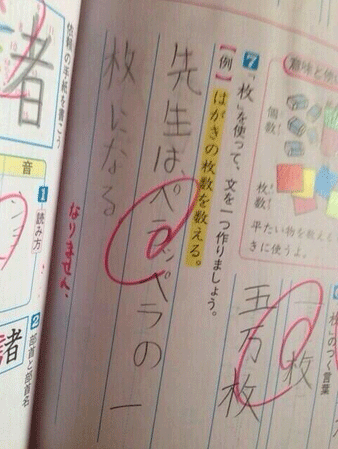 意味と使い
個数!
枚!
数!
平たい物を数えると
きに使うよ。
」のつく言葉
一枚
五万枚
7 「枚」を使って、文を一つ作りましょう。
【例】はがきの枚数を数える。
先生は、ペラッペラの一
枚になる
なりません。
者
依頼の手紙を書こう
音
1 読み方
2 部首と部首名
諸